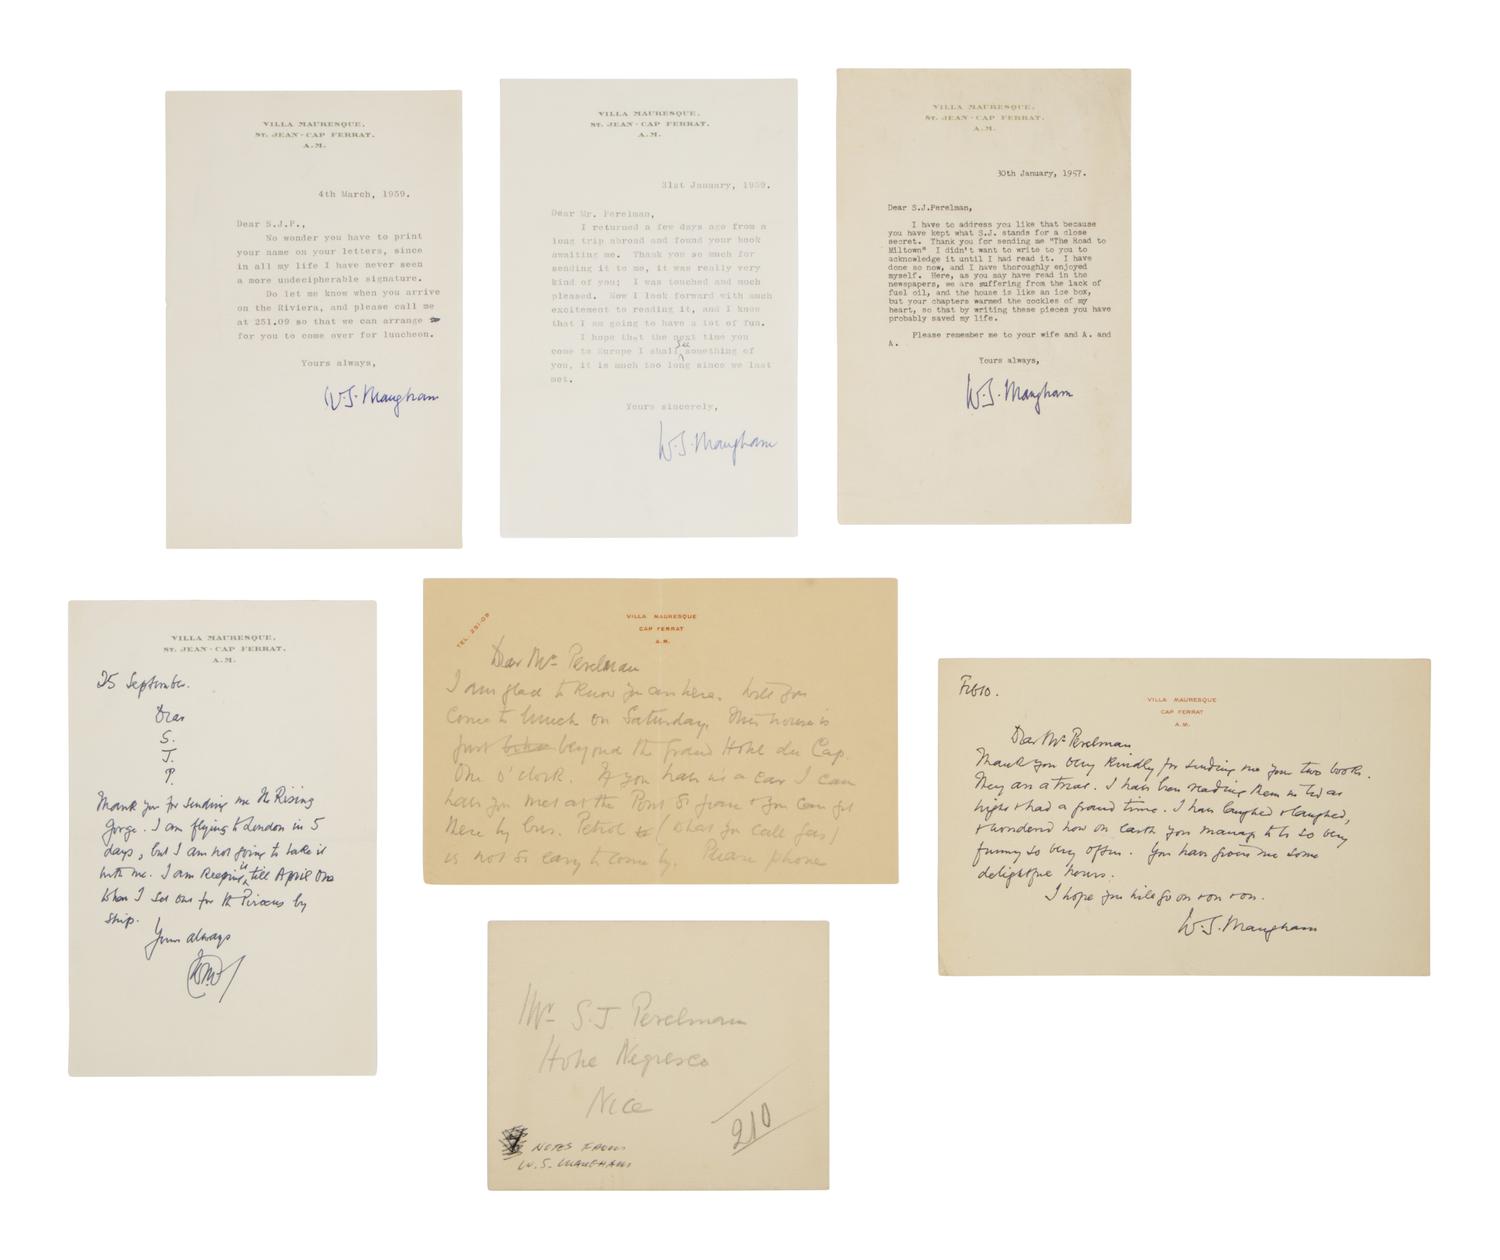 VILLA MAURESQUE,
ST. JEAN-CAP FERRAT.
A.M.
4th March, 1959.
Dear S.J.P.,
No wonder you have to print
your name on your letters, since
in all my life I have never seen
a more undecipherable signature.
Do let me know when you arrive
on the Riviera, and please call me
at 251.09 so that we can arrange
for you to come over for luncheon.
Yours always,
W.S. Maugham
VILLA MAURESQUE,
ST. JEAN-CAP FERRAT.
A.M.
31st January, 1959.
Dear Mr. Perelman,
I returned a few days ago from a
long trip abroad and found your book
awaiting me. Thank you so much for
sending it to me, it was really very
kind of you; I was touched and much
pleased. Now I look forward with much
excitement to reading it, and I know
that I am going to have a lot of fun.
I hope that the next time you
come to Europe I shall see something of
you, it is much too long since we last
met.
Yours sincerely,
W.S. Maugham
VILLA MAURESQUE,
ST. JEAN-CAP FERRAT.
A.M.
30th January, 1957.
Dear S.J.Perelman,
I have to address you like that because
you have kept what S.J. stands for a close
secret. Thank you for sending me "The Road to
Miltown" I didn't want to write to you to
acknowledge it until I had read it. I have
done so now, and I have thoroughly enjoyed
myself. Here, as you may have read in the
newspapers, we are suffering from the lack of
fuel oil, and the house is like an ice box,
but your chapters warmed the cockles of my
heart, so that by writing these pieces you have
probably saved my life.
Please remember me to your wife and A. and
A.
Yours always,
W.S. Maugham
VILLA MAURESQUE,
ST. JEAN-CAP FERRAT.
A.M.
25 September.
Dear
S.
J.
P.
Thank you for sending me The Rising
Gorge. I am flying to London in 5
days, but I am not going to take it
with me. I am keeping it till April
when I set out for the Piraeus by
ship.
Yours always
WSM
TEL 251-09
VILLA MAURESQUE
CAP FERRAT
A.M.
Dear Mr Perelman
I am glad to know you are here. Will you
come to lunch on Saturday. This house is
just beyond the Grand Hotel du Cap.
One o'clock. If you have not a car I can
have you met at the Pont St Jean & you can get
there by bus. Petrol (what you call gas)
is not so easy to come by. Please phone
Feb 10.
VILLA MAURESQUE
CAP FERRAT
A.M.
Dear Mr Perelman
Thank you very kindly for sending me your two books.
They are a treat. I have been reading them in bed at
night & had a grand time. I have laughed & laughed,
& wondered how on earth you manage to be so very
funny so very often. You have given me some
delightful hours.
I hope you will go on & on & on.
W.S. Maugham
Mr S.J. Perelman
Hotel Negresco
Nice
210
7 NOTES FROM
W.S. MAUGHAM